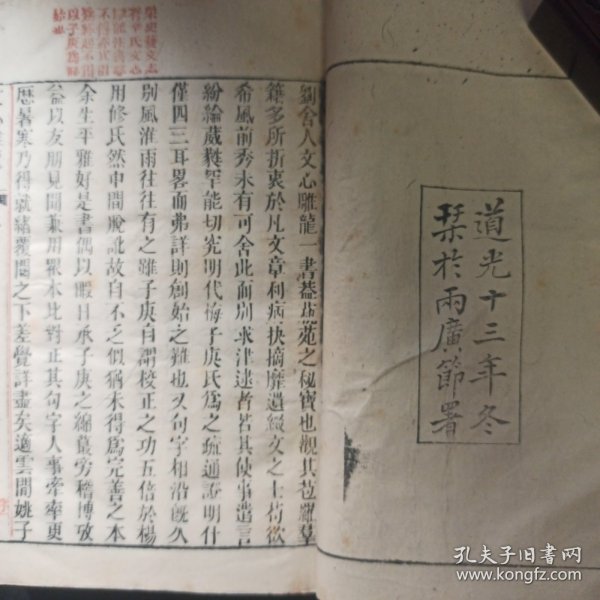 道光十三年冬
栞於兩廣節署
劉舍人文心雕龍一書葢藝苑之秘寶也觀其苞羅羣
籍多所折衷於凡文章利病抉摘靡遺綴文之士苟欲
希風前秀未有可舍此而別求津逮者若其使事遣言
紛綸葳蕤罕能切究明代梅子庚氏爲之疏通證明什
僅四三耳畧而弗詳則創始之難也又句字相沿旣久
別風淮雨往往有之雖子庚自謂校正之功五倍於楊
用修氏然中間脫訛故自不乏似猶未得爲完善之本
余生平雅好是書偶以暇日承子庚之緜蕞旁稽博攷
益以友朋見聞兼用眾本比對正其句字人事牽率更
歷暑寒乃得就緒覆閱之下差覺詳盡矣適雲間姚子
孔夫子旧书网
www.kongfz.com